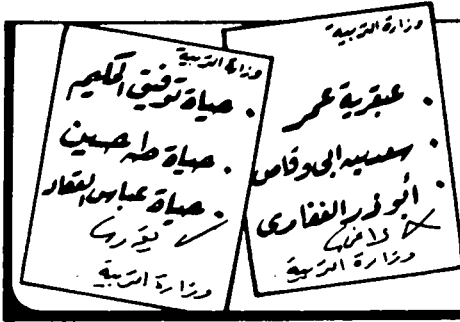 وزارة التربية
• عبقرية عمر
• سعد بن ابى وقاص
• أبو ذر الغفارى
وزارة التربية
وزارة التربية
• حياة توفيق الحكيم
• حياة طه حسين
• حياة عباس العقاد
وزارة التربية